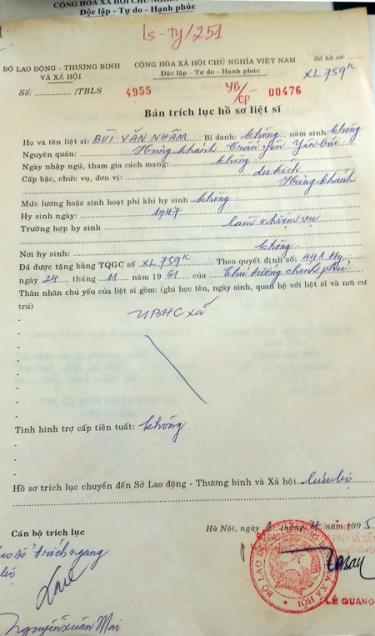 CỘNG HÒA XÃ HỘI CHỦ NGHĨA VIỆT NAM
Độc lập - Tự do - Hạnh phúc
LS-Ty/251
BỘ LAO ĐỘNG - THƯƠNG BINH VÀ XÃ HỘI
CỘNG HÒA XÃ HỘI CHỦ NGHĨA VIỆT NAM
Độc lập - Tự do - Hạnh phúc
Số hồ sơ
XL 759K
Số: /TBLS 4955 YB/CP- 00476
Bản trích lục hồ sơ liệt sĩ
Họ và tên liệt sĩ: BÙI VĂN NHÂM Bí danh: không năm sinh không
Nguyên quán: Hưng Khánh Trấn Yên Yên Bái
Ngày nhập ngũ, tham gia cách mạng: không
Cấp bậc, chức vụ, đơn vị: du kích
Hưng Khánh
Mức lương hoặc sinh hoạt phí khi hy sinh không
Hy sinh ngày: 1947
Trường hợp hy sinh làm nhiệm vụ
Nơi hy sinh: không
Đã được tặng bằng TQGC số XL 759K Theo quyết định số: 441 Ng
ngày 24 tháng 11 năm 1961 của Thủ tướng chính phủ
Thân nhân chủ yếu của liệt sĩ gồm: (ghi học tên, ngày sinh, quan hệ với liệt sĩ và nơi cư
trú)
UBHC xã
Tình hình trợ cấp tiền tuất: không
Hồ sơ trích lục chuyển đến Sở Lao động - Thương binh và Xã hội lưu bộ
Hà Nội, ngày tháng năm 199
Cán bộ trích lục
trích ngang
LÊ QUANG
Nguyễn Xuân Mai